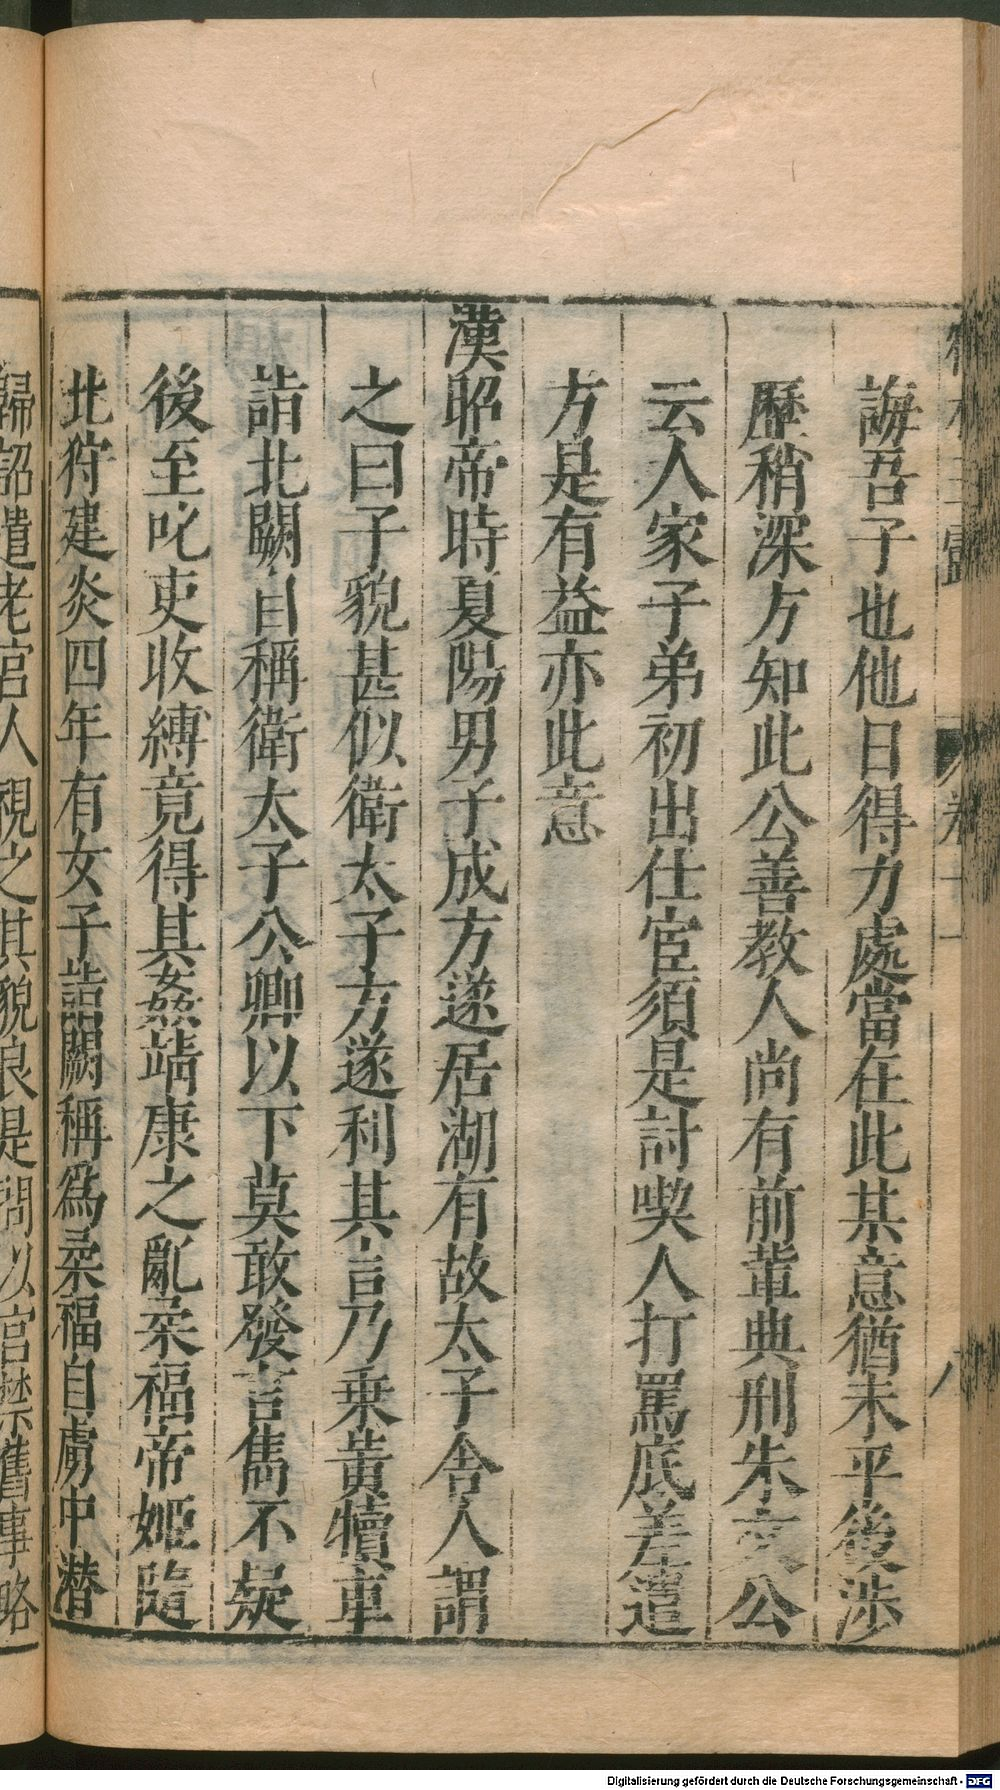 誨吾子也他日得力處當在此某意猶未平後涉
歷稍深方知此公善教人尚有前輩典刑朱文公
云人家子弟初出仕宦須是討喫人打罵底差遣
方是有益亦此意
漢昭帝時夏陽男子成方遂居湖有故太子舍人謂
之曰子貌甚似衛太子方遂利其言乃乗黄犢車
詣北闕自稱衛太子公卿以下莫敢發言雋不疑
後至叱吏收縛竟得其姦靖康之亂柔福帝姬隨
北狩建炎四年有女子詣闕稱爲柔福自虜中潜
歸詔遣老宮人視之其貌良是問以宮禁舊事略
Digitalisierung gefördert durch die Deutsche Forschungsgemeinschaft - DFG